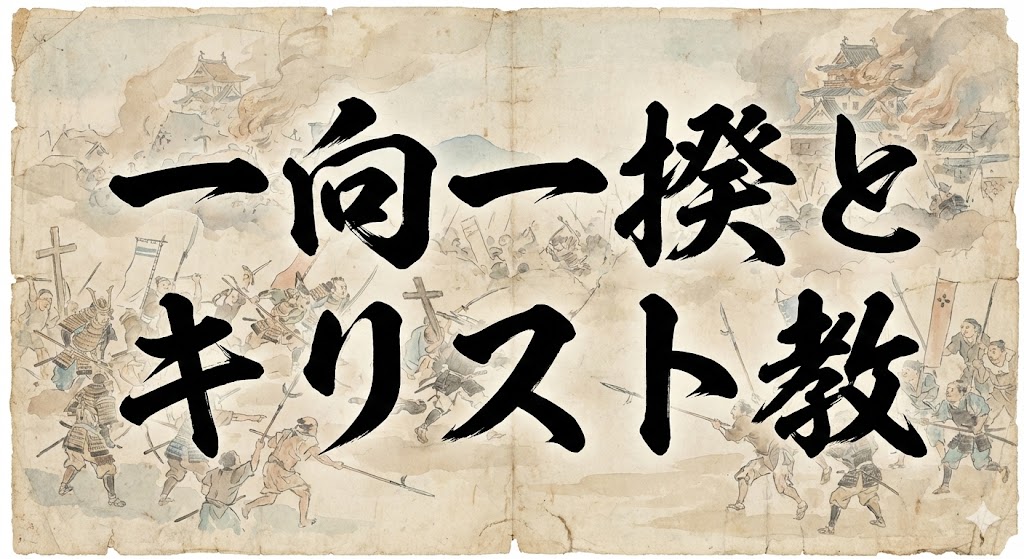 一向一揆と
キリスト教